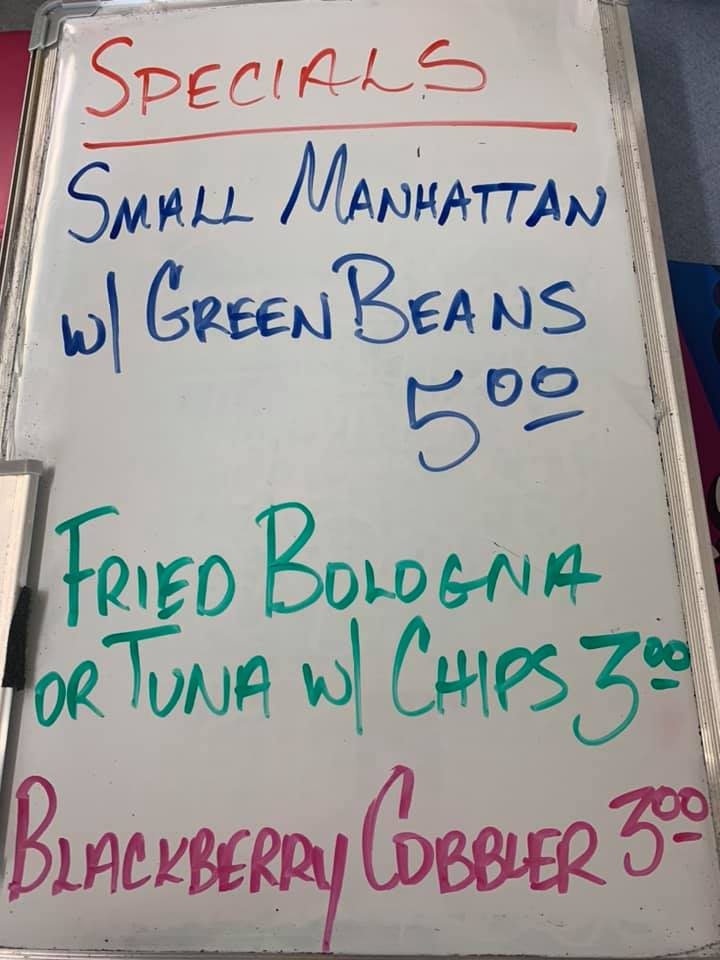 SPECIALS
SMALL MANHATTAN
W/ GREEN BEANS
5.00
FRIED BOLOGNA
OR TUNA W/ CHIPS 3.00
BLACKBERRY COBBLER 3.00